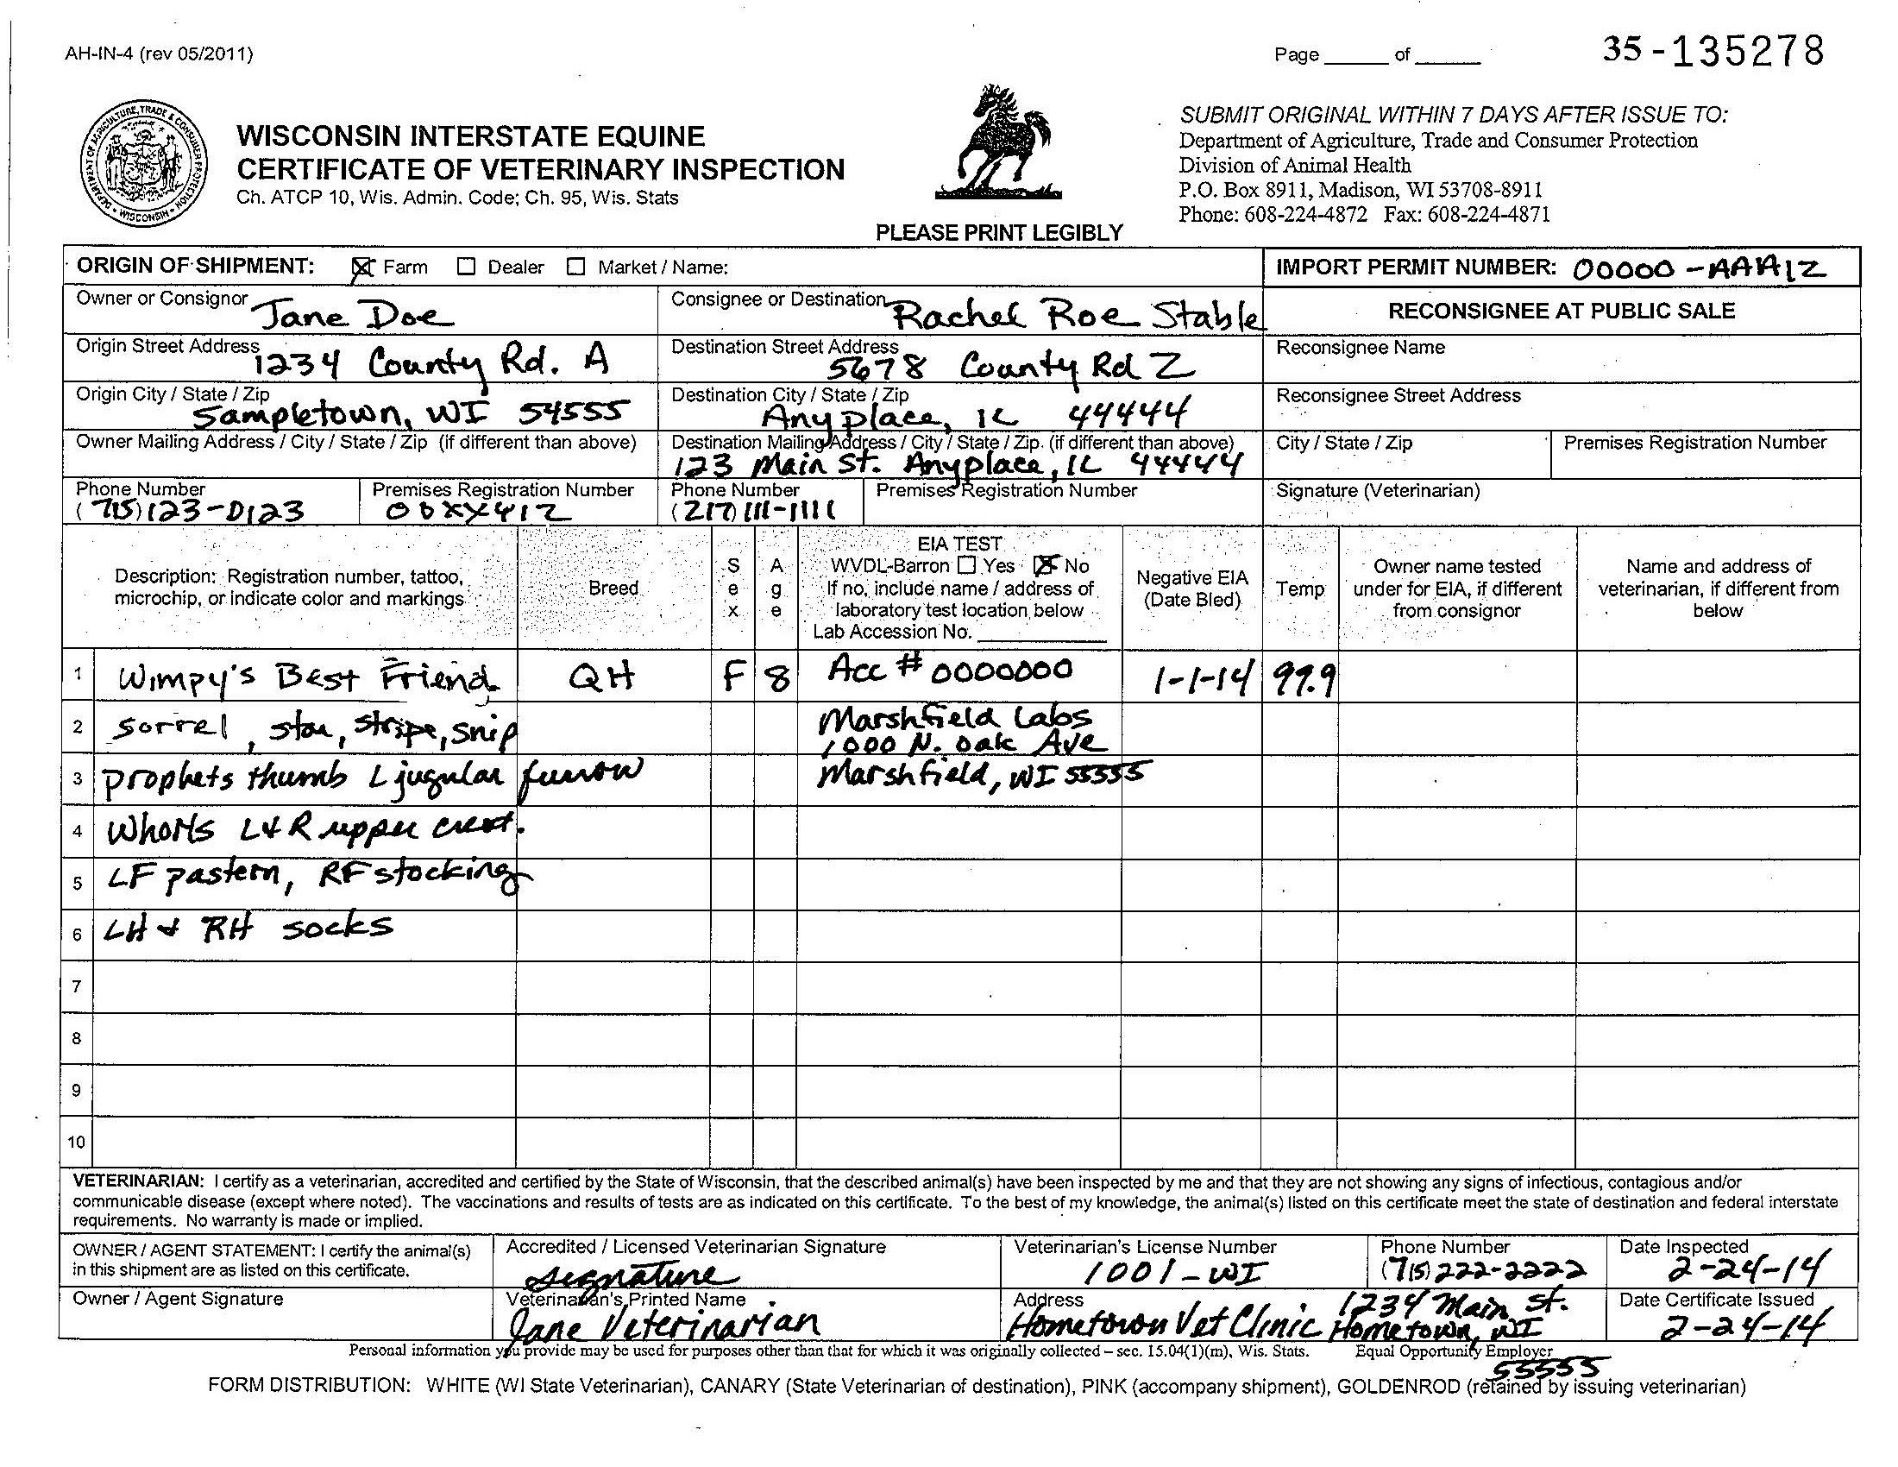 AH-IN-4 (rev 05/2011)
Page ____ of ____
35-135278
WISCONSIN INTERSTATE EQUINE
CERTIFICATE OF VETERINARY INSPECTION
Ch. ATCP 10, Wis. Admin. Code; Ch. 95, Wis. Stats
PLEASE PRINT LEGIBLY
SUBMIT ORIGINAL WITHIN 7 DAYS AFTER ISSUE TO:
Department of Agriculture, Trade and Consumer Protection
Division of Animal Health
P.O. Box 8911, Madison, WI 53708-8911
Phone: 608-224-4872 Fax: 608-224-4871
ORIGIN OF SHIPMENT: ☒ Farm ☐ Dealer ☐ Market / Name:
IMPORT PERMIT NUMBER: 00000-AAA12
Owner or Consignor Jane Doe
Consignee or Destination Rachel Roe Stable
RECONSIGNEE AT PUBLIC SALE
Origin Street Address 1234 County Rd. A
Destination Street Address 5678 County Rd Z
Reconsignee Name
Origin City / State / Zip Sampletown, WI 54555
Destination City / State / Zip Anyplace, IL 44444
Reconsignee Street Address
Owner Mailing Address / City / State / Zip (if different than above)
Destination Mailing Address / City / State / Zip. (if different than above)
123 Main St. Anyplace, IL 44444
City / State / Zip
Premises Registration Number
Phone Number (715) 123-0123
Premises Registration Number 00XX412
Phone Number (217) 111-1111
Premises Registration Number
Signature (Veterinarian)
Description: Registration number, tattoo,
microchip, or indicate color and markings
Breed
Sex
Age
EIA TEST
WVDL-Barron ☐ Yes ☒ No
If no, include name / address of
laboratory test location below
Lab Accession No. ____
Negative EIA
(Date Bled)
Temp
Owner name tested
under for EIA, if different
from consignor
Name and address of
veterinarian, if different from
below
1 Wimpy's Best Friend QH F 8 Acc # 0000000 1-1-14 99.9
2 sorrel, star, stripe, snip Marshfield Labs
1000 N. Oak Ave
3 prophets thumb L jugular furrow Marshfield, WI 55555
4 Whorls L & R upper crest.
5 LF pastern, RF stocking
6 LH & RH socks
7
8
9
10
VETERINARIAN: I certify as a veterinarian, accredited and certified by the State of Wisconsin, that the described animal(s) have been inspected by me and that they are not showing any signs of infectious, contagious and/or
communicable disease (except where noted). The vaccinations and results of tests are as indicated on this certificate. To the best of my knowledge, the animal(s) listed on this certificate meet the state of destination and federal interstate
requirements. No warranty is made or implied.
OWNER / AGENT STATEMENT: I certify the animal(s)
in this shipment are as listed on this certificate.
Accredited / Licensed Veterinarian Signature
signature
Veterinarian's License Number
1001-WI
Phone Number
(715) 222-2222
Date Inspected
2-24-14
Owner / Agent Signature
Veterinarian's Printed Name
Jane Veterinarian
Address
Hometown Vet Clinic 1234 Main St.
Hometown, WI
55555
Date Certificate Issued
2-24-14
Personal information you provide may be used for purposes other than that for which it was originally collected – sec. 15.04(1)(m), Wis. Stats.
Equal Opportunity Employer
FORM DISTRIBUTION: WHITE (WI State Veterinarian), CANARY (State Veterinarian of destination), PINK (accompany shipment), GOLDENROD (retained by issuing veterinarian)